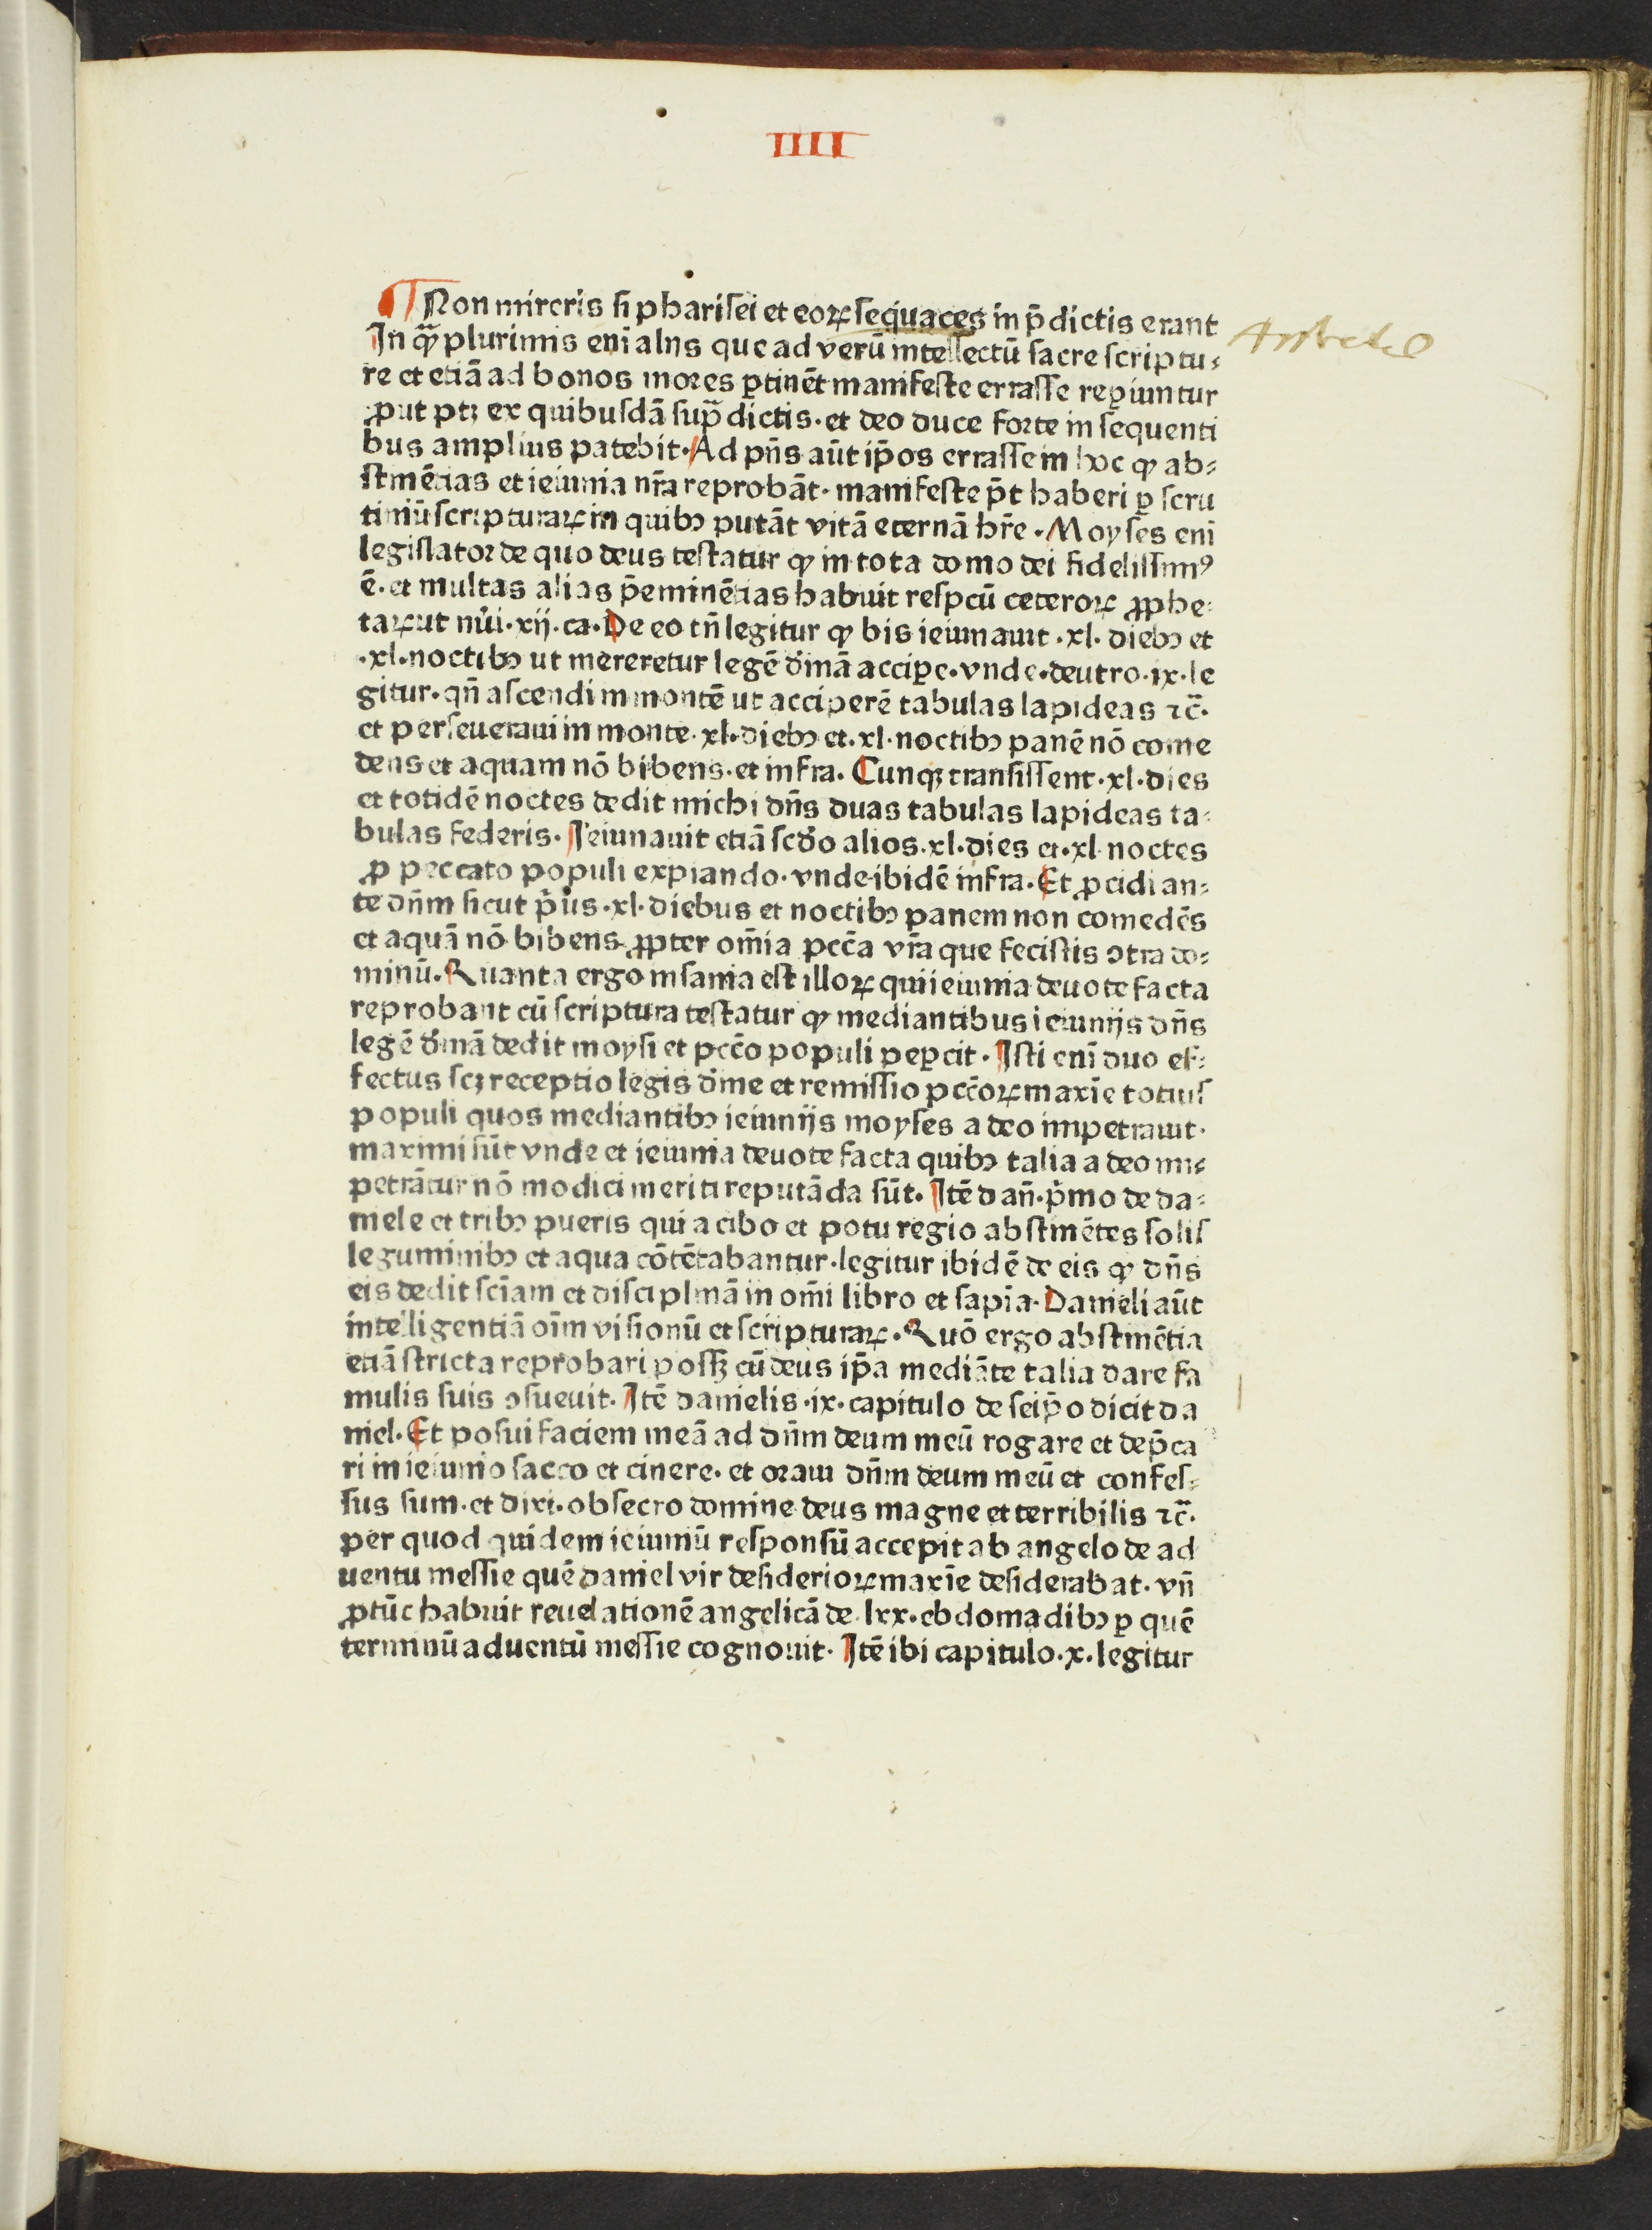 IIII
Non mireris si pharisei et eoꝝ sequaces in p̄dictis erant
In qͣꝫ plurimis eni alijs que ad verū intellectū sacre scriptu⸗
re et etiā ad bonos mores ꝑtinēt manifeste errasse reꝑiuntur
ꝓut ptꝫ ex quibusdā supͣdictis· et deo duce forte in sequenti
bus amplius patebit· Ad pn̄s aūt ip̄os errasse in hoc ꝙ ab⸗
stinētias et ieiunia nr̄a reprobāt· manifeste p̄t haberi ꝑ scru
tiniū scripturaꝝ in quibꝫ putāt vitā eternā hr̄e · Moyses eni
legislator de quo deus testatur ꝙ in tota domo dei fidelissimꝰ
ē· et multas alias p̄eminētias habuit respcū ceteroꝝ ꝓphe⸗
taꝝ ut nūi·xij·ca· De eo tn̄ legitur ꝙ bis ieiunauit ·xl· diebꝫ et
·xl·noctibꝫ ut mereretur legē dīnā acciꝑe· vnde·deutro·ix·le
gitur· qn̄ ascendi in montē ut acciperē tabulas lapideas ⁊c̄·
et perseueraui in monte· xl·diebꝫ et·xl·noctibꝫ panē nō come
dens et aquam nō bibens· et infra· Cunqꝫ transissent·xl·dies
et totidē noctes dedit michi dn̄s duas tabulas lapideas ta⸗
bulas federis· Ieiunauit etiā scd̄o alios·xl·dies et·xl·noctes
ꝓ peccato populi expiando· vnde ibidē infra· Et ꝓcidi an⸗
te dn̄m sicut p̄us·xl·diebus et noctibꝫ panem non comedēs
et aquā nō bibens ꝓpter om̄ia pcc̄a vr̄a que fecistis ꝯtra do⸗
minū· Quanta ergo insania est illoꝝ qui ieiunia deuote facta
reprobant cū scriptura testatur ꝙ mediantibus ieiunijs dn̄s
legē dīnā dedit moysi et pcc̄o populi peꝑcit· Isti eni duo ef⸗
fectus scꝫ receptio legis dīne et remissio pcc̄oꝝ maxīe totius
populi quos mediantibꝫ ieiunijs moyses a deo impetrauit·
maximi sūt vnde et ieiunia deuote facta quibꝫ talia a deo im⸗
petrātur nō modici meriti reputāda sūt· Itē dan̄·p̄mo de da⸗
niele et tribꝫ pueris qui a cibo et potu regio abstinētes solis
leguminibꝫ et aqua cōtētabantur·legitur ibidē de eis ꝙ dn̄s
eis dedit sciam et disciplinā in om̄i libro et sapīa· Danieli aūt
intelligentiā oīm visionū et scripturaꝝ· Quō ergo abstinētia
etiā stricta reprobari possꝫ cū deus ip̄a mediāte talia dare fa
mulis suis ꝯsueuit· Itē danielis·ix·capitulo de seip̄o dicit da
niel· Et posui faciem meā ad dn̄m deum meū rogare et dep̄ca
ri in ieiunio sacco et cinere· et oraui dn̄m deum meū et confes⸗
sus sum·et dixi·obsecro domine deus magne et terribilis ⁊c̄·
per quod quidem ieiuniū responsū accepit ab angelo de ad
uentu messie quē daniel vir desiderioꝝ maxīe desiderabat· vn̄
ꝓtūc habuit reuelationē angelicā de·lxx·ebdomadibꝫ ꝑ quē
terminū aduentū messie cognouit· Itē ibi capitulo·x·legitur